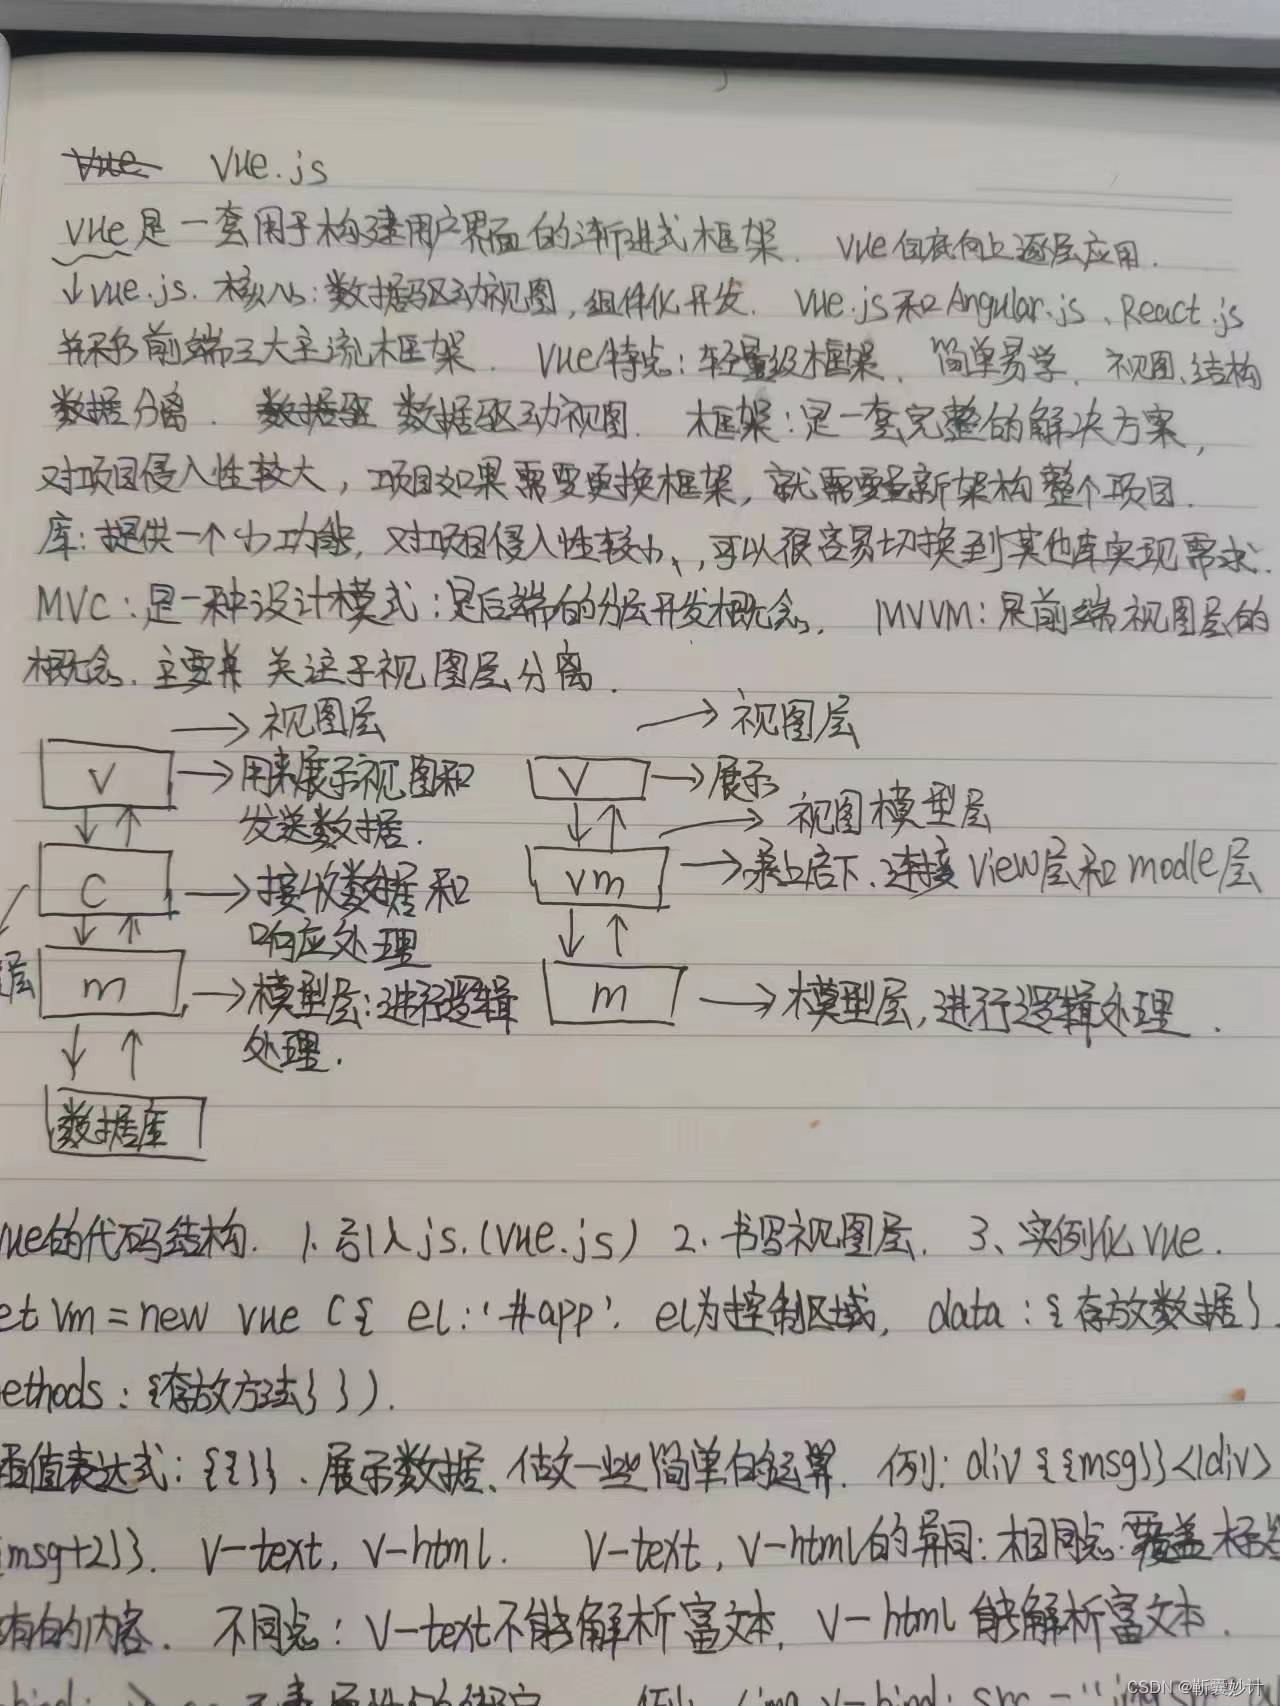 Vue Vue.js
Vue是一套用于构建用户界面的渐进式框架. Vue自底向上逐层应用.
↓vue.js. 核心:数据驱动视图,组件化开发. Vue.js和Angular.js、React.js
并称为前端三大主流框架. Vue特点:轻量级框架、简单易学、视图、结构
数据分离. 数据驱 数据驱动视图. 框架:是一套完整的解决方案,
对项目侵入性较大,项目如果需要更换框架,就需要重新架构整个项目.
库:提供一个小功能,对项目侵入性较小、,可以很容易切换到其他库实现需求.
MVC:是一种设计模式:是后端的分层开发概念. MVVM:是前端视图层的
概念.主要 关注于视图层分离.
→视图层 →视图层
V →用来展示视图和 V →展示
发送数据. →视图模型层
C →接收数据和 vm →承上启下.连接View层和modle层
响应处理
层 m →模型层:进行逻辑 m →模型层,进行逻辑处理.
处理.
数据库
vue的代码结构. 1.引入js.(vue.js) 2.书写视图层. 3、实例化vue.
et vm=new vue ({ el:'#app'. el为控制区域, data:{存放数据}.
ethods:{存放方法}}).
插值表达式:{{}}.展示数据、做一些简单的运算. 例:div{{msg}}</div>
msg+2}}. v-text,v-html. v-text,v-html的异同:相同点:覆盖标
有的内容. 不同点:v-text不能解析富文本,v-html能解析富文本.
CSDN @靳囊妙计